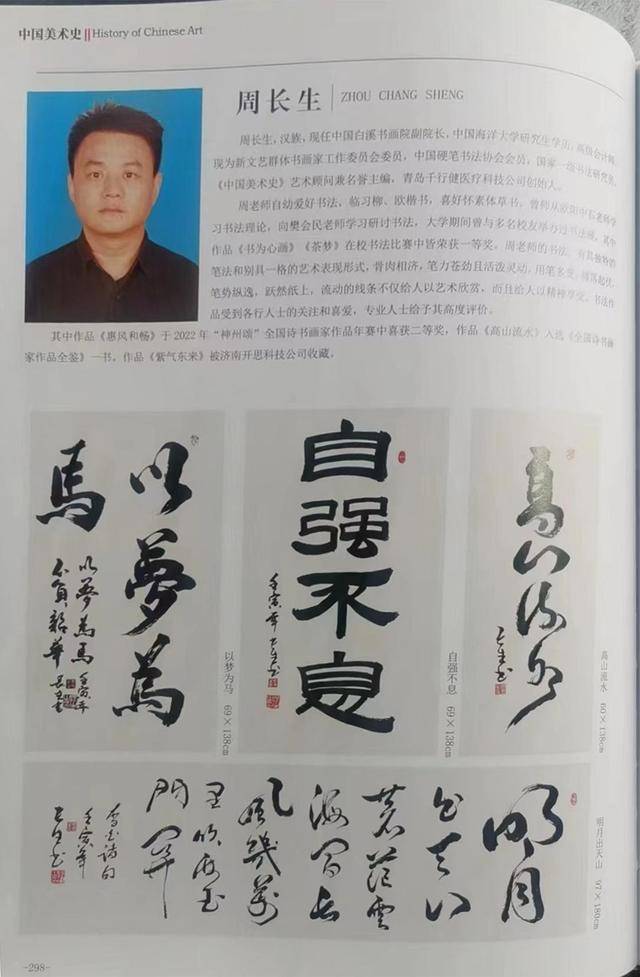 中国美术史||History of Chinese Art
周长生 | ZHOU CHANG SHENG
周长生，汉族，现任中国白溪书画院副院长，中国海洋大学研究生学历，高级会计师，
现为新文艺群体书画家工作委员会委员，中国硬笔书法协会会员，国家一级书法研究员，
《中国美术史》艺术顾问兼名誉主编，青岛千行健医疗科技公司创始人。
周老师自幼爱好书法，临习柳、欧楷书，喜好怀素体草书，曾师从欧阳中石老师学
习书法理论，向樊会民老师学习研讨书法，大学期间曾与多名校友举办过书法展，其中
作品《书为心画》《茶梦》在校书法比赛中皆荣获一等奖。周老师的书法，有其独特的
笔法和别具一格的艺术表现形式，骨肉相济，笔力苍劲且活泼灵动，用笔多变，跌荡起伏，
笔势纵逸，跃然纸上，流动的线条不仅给人以艺术欣赏，而且给人以精神享受。书法作
品受到各行人士的关注和喜爱，专业人士给予其高度评价。
其中作品《惠风和畅》于2022年“神州颂”全国诗书画家作品年赛中喜获二等奖，作品《高山流水》入选《全国诗书画
家作品全鉴》一书。作品《紫气东来》被济南开思科技公司收藏。
以夢為
馬
以夢為馬
不負韶華
壬寅年
以梦为马 69×138cm
自强不息
壬寅年
自强不息 69×138cm
高山流水
高山流水 60×138cm
明月
出天山
蒼茫雲
海間長
風幾萬
里吹度玉
門關
李白詩句
壬寅年
明月出天山 97×180cm
-298-